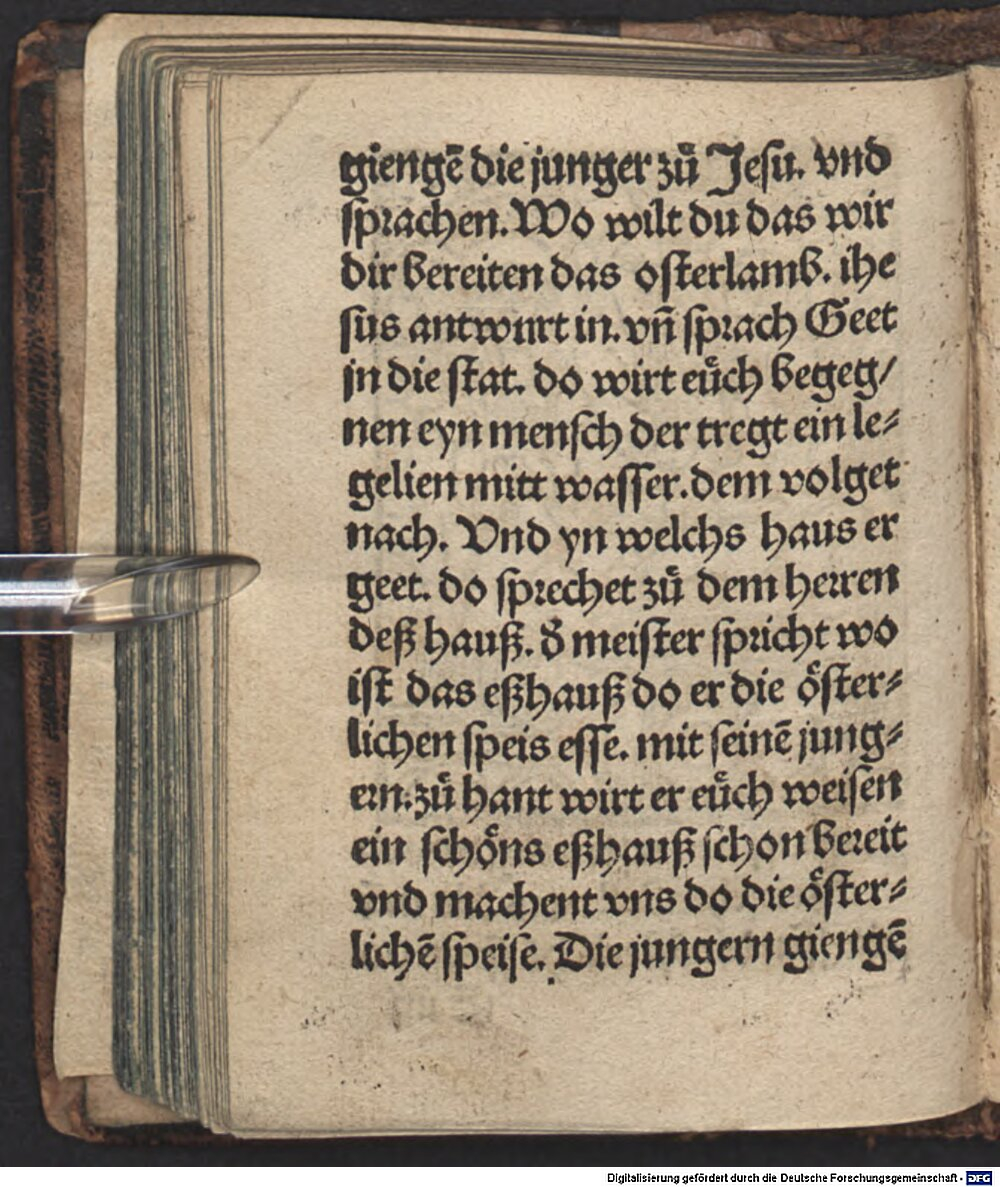 giengẽ die junger zů Jesu. vnd
sprachen. Wo wilt du das wir
dir bereiten das osterlamb. ihe
sus antwurt in. vñ sprach Geet
jn die stat. do wirt eüch begeg/
nen eyn mensch der tregt ein le⸗
gelien mitt wasser. dem volget
nach. Vnd yn welchs haus er
geet. do sprechet zů dem herren
deß hauß. ð meister spricht wo
ist das eßhauß do er die öster⸗
lichen speis esse. mit seinẽ jung⸗
ern. zů hant wirt er eüch weisen
ein schöns eßhauß schon bereit
vnd machent vns do die öster⸗
lichẽ speise. Die jungern giengẽ
Digitalisierung gefördert durch die Deutsche Forschungsgemeinschaft - DFG